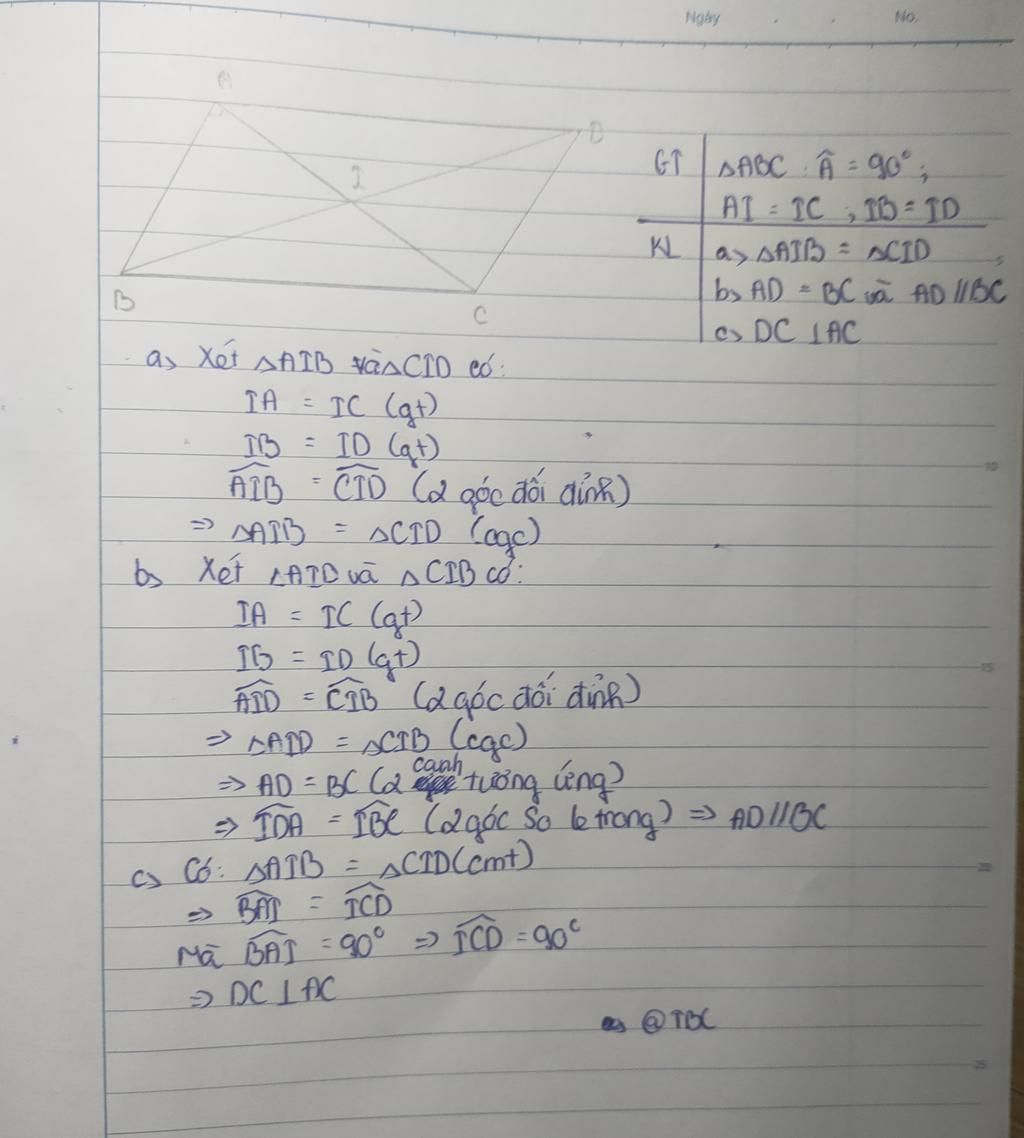 Ngày No.
A
D
I
B
C
GT ΔABC : Â = 90°;
AI = IC ; IB = ID
KL a, ΔAIB = ΔCID
b, AD = BC và AD // BC
c, DC ⊥ AC
a, Xét ΔAIB và ΔCID có:
IA = IC (gt)
IB = ID (gt)
\widehat{AIB} = \widehat{CID} (2 góc đối đỉnh)
=> ΔAIB = ΔCID (cgc)
b, Xét ΔAID và ΔCIB có:
IA = IC (gt)
IB = ID (gt)
\widehat{AID} = \widehat{CIB} (2 góc đối đỉnh)
=> ΔAID = ΔCIB (cgc)
=> AD = BC (2 cạnh tương ứng)
=> \widehat{IDA} = \widehat{IBC} (2 góc so le trong) => AD // BC
c, Có: ΔAIB = ΔCID (cmt)
=> \widehat{BAI} = \widehat{ICD}
Mà \widehat{BAI} = 90° => \widehat{ICD} = 90°
=> DC ⊥ AC
@TBC
10
15
20
25